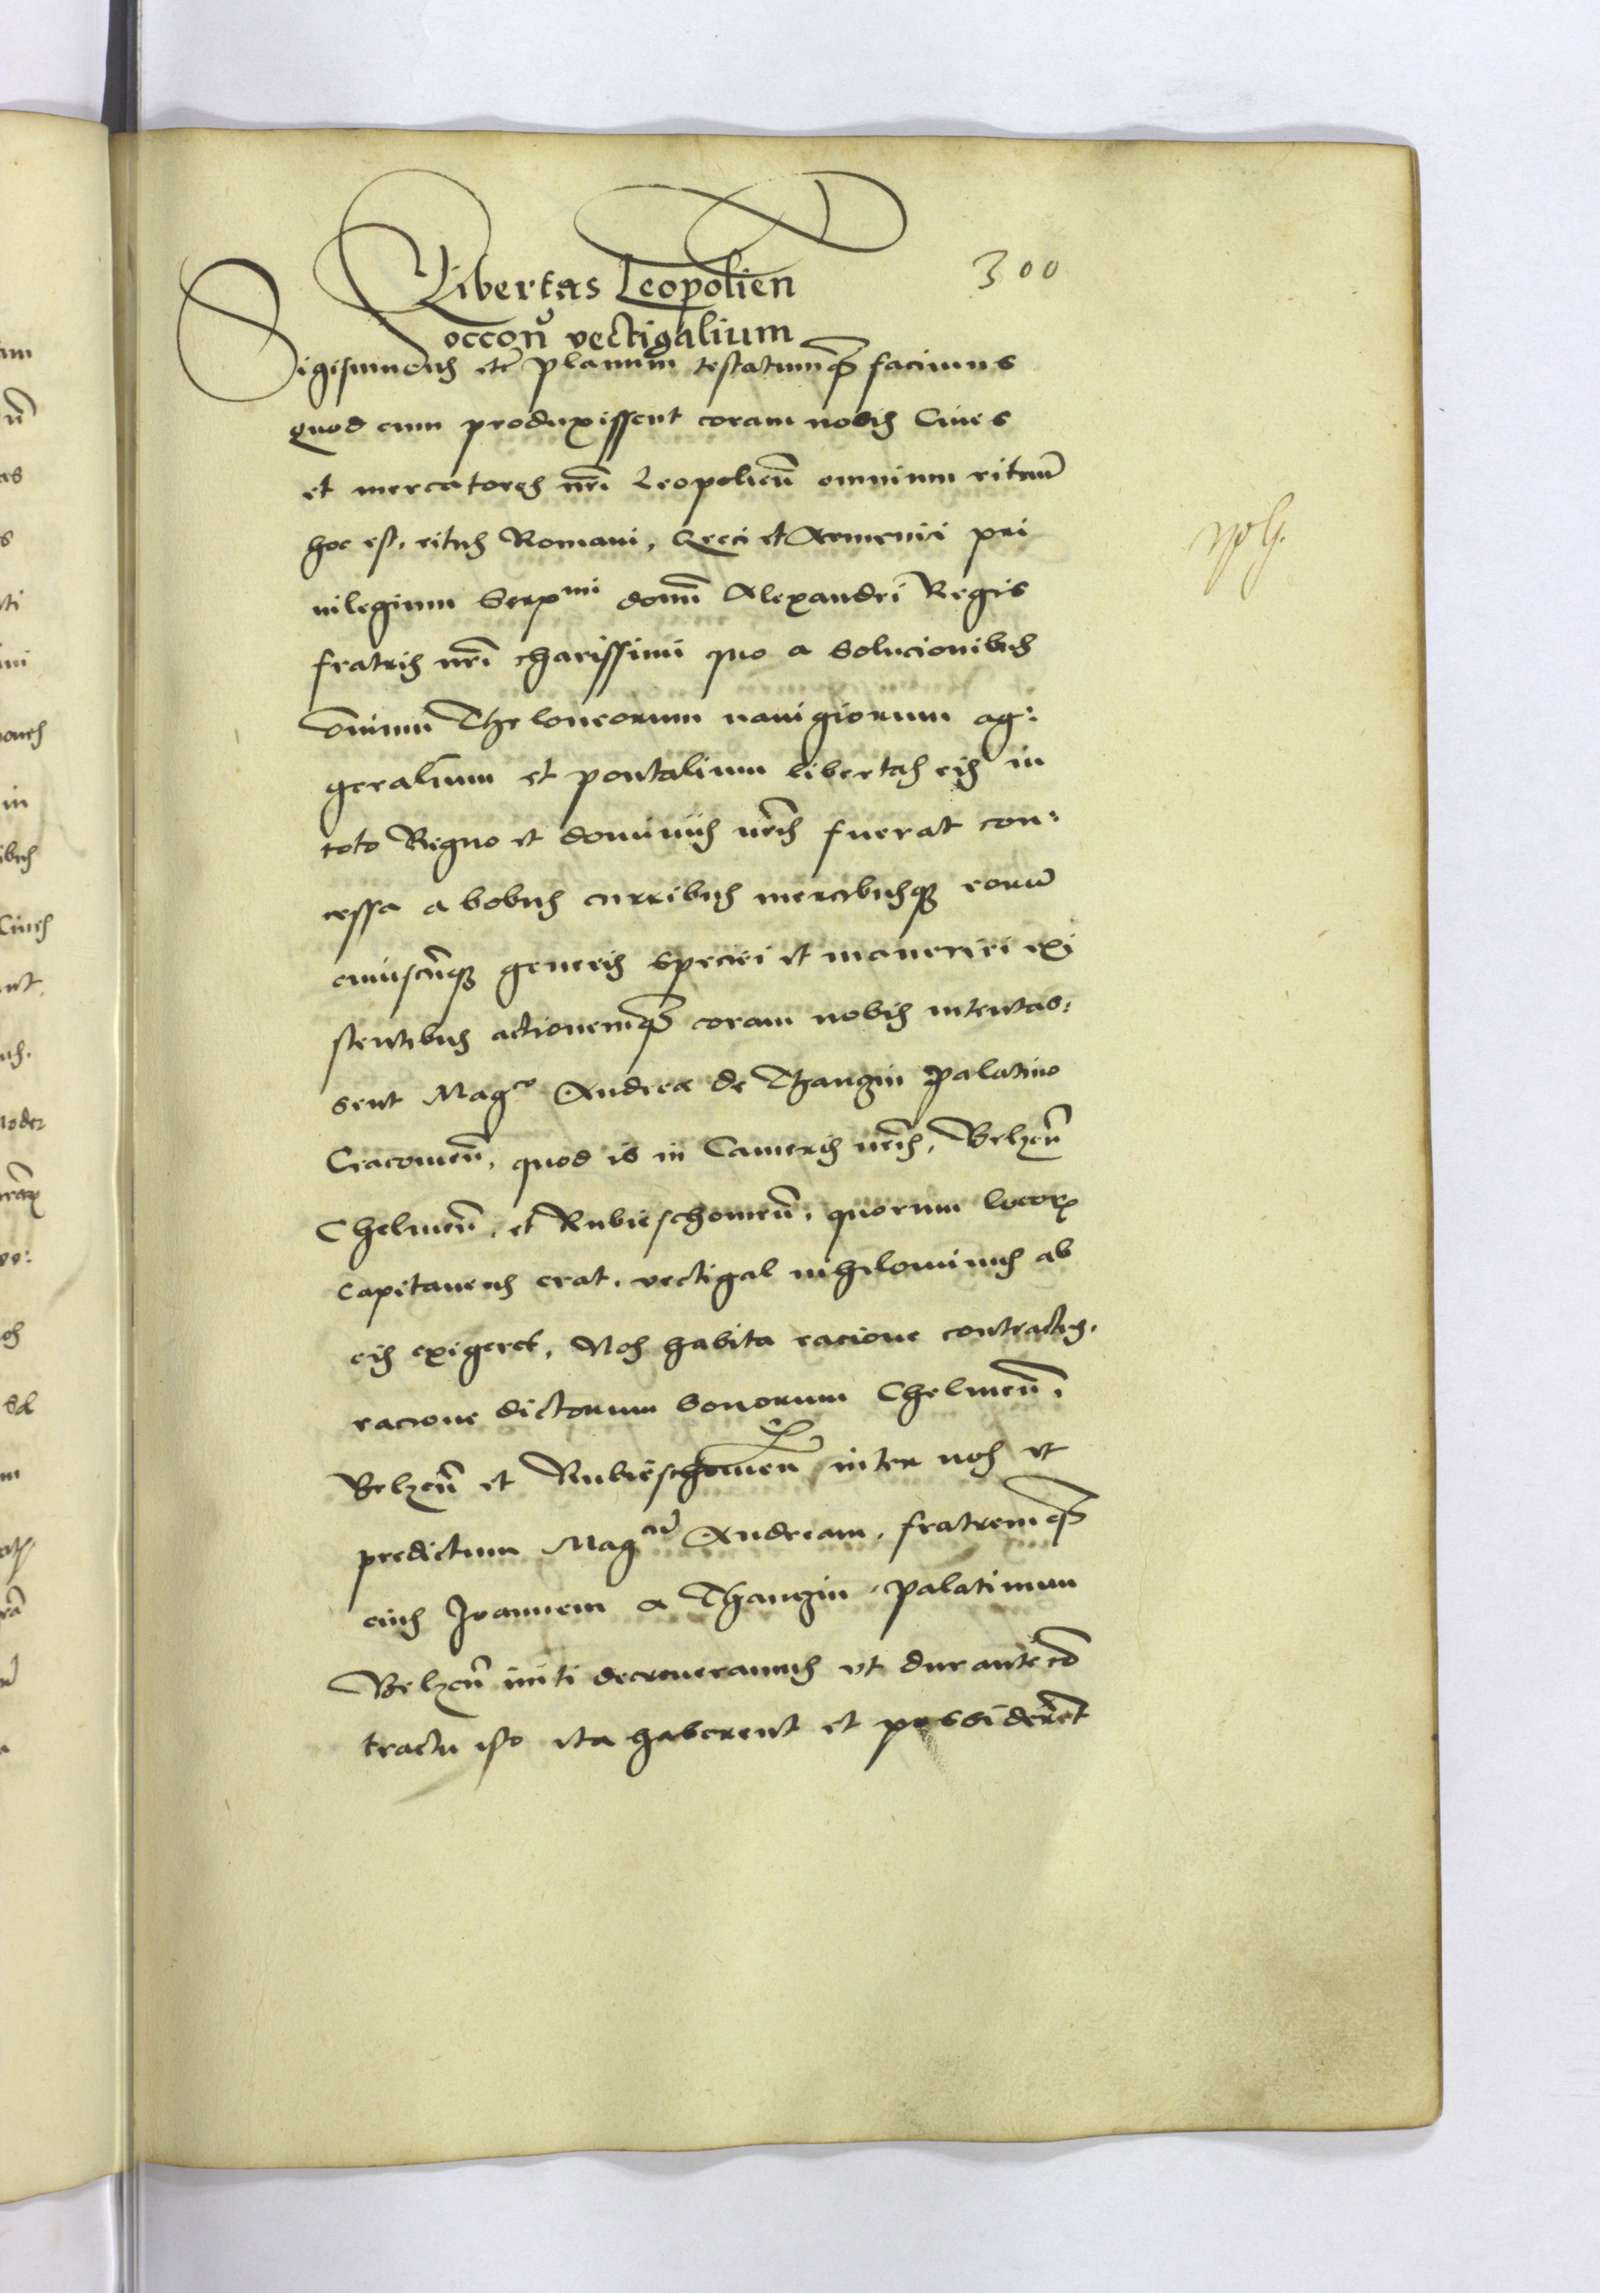 300
Libertas Leopolien
occon vectigalium
Sigismundus etc planum testatumq facimus
quod cum produxissent coram nobis Ciues
et mercatores nri Leopolien omnium rituu
hoc est, ritus Romani, Greci et Armenici pri
uilegium Serx^mi domi Alexandri Regis
fratris nri charissimi quo a solucionibus
omnium Theloneorum nauigiorum ag:
geralium et pontalium libertas eis in
toto Regno et dominiis nris fuerat con:
cessa a bobus curribus mercibusq eoru
cuiuscunq generis speciei et maneriei exi
stentibus actionemq coram nobis intentas:
sent Mag^co Andree de Thangin Palatino
Cracouien, quod is in Cameris nris, Belzen
Chelmen, et Rubieschouien, quorum locor
Capitaneus erat, vectigal nihilominus ab
eis exigeret, Nos habita racione contractus,
racione dictorum bonorum Chelmen,
Belzen et Rubieschouien inter nos et
predictum Mag^cu Andream, fratremq
eius Joannem a Thangin Palatinum
Belzen initi decreueramus vt durante co
tractu isto ita haberent et possideret